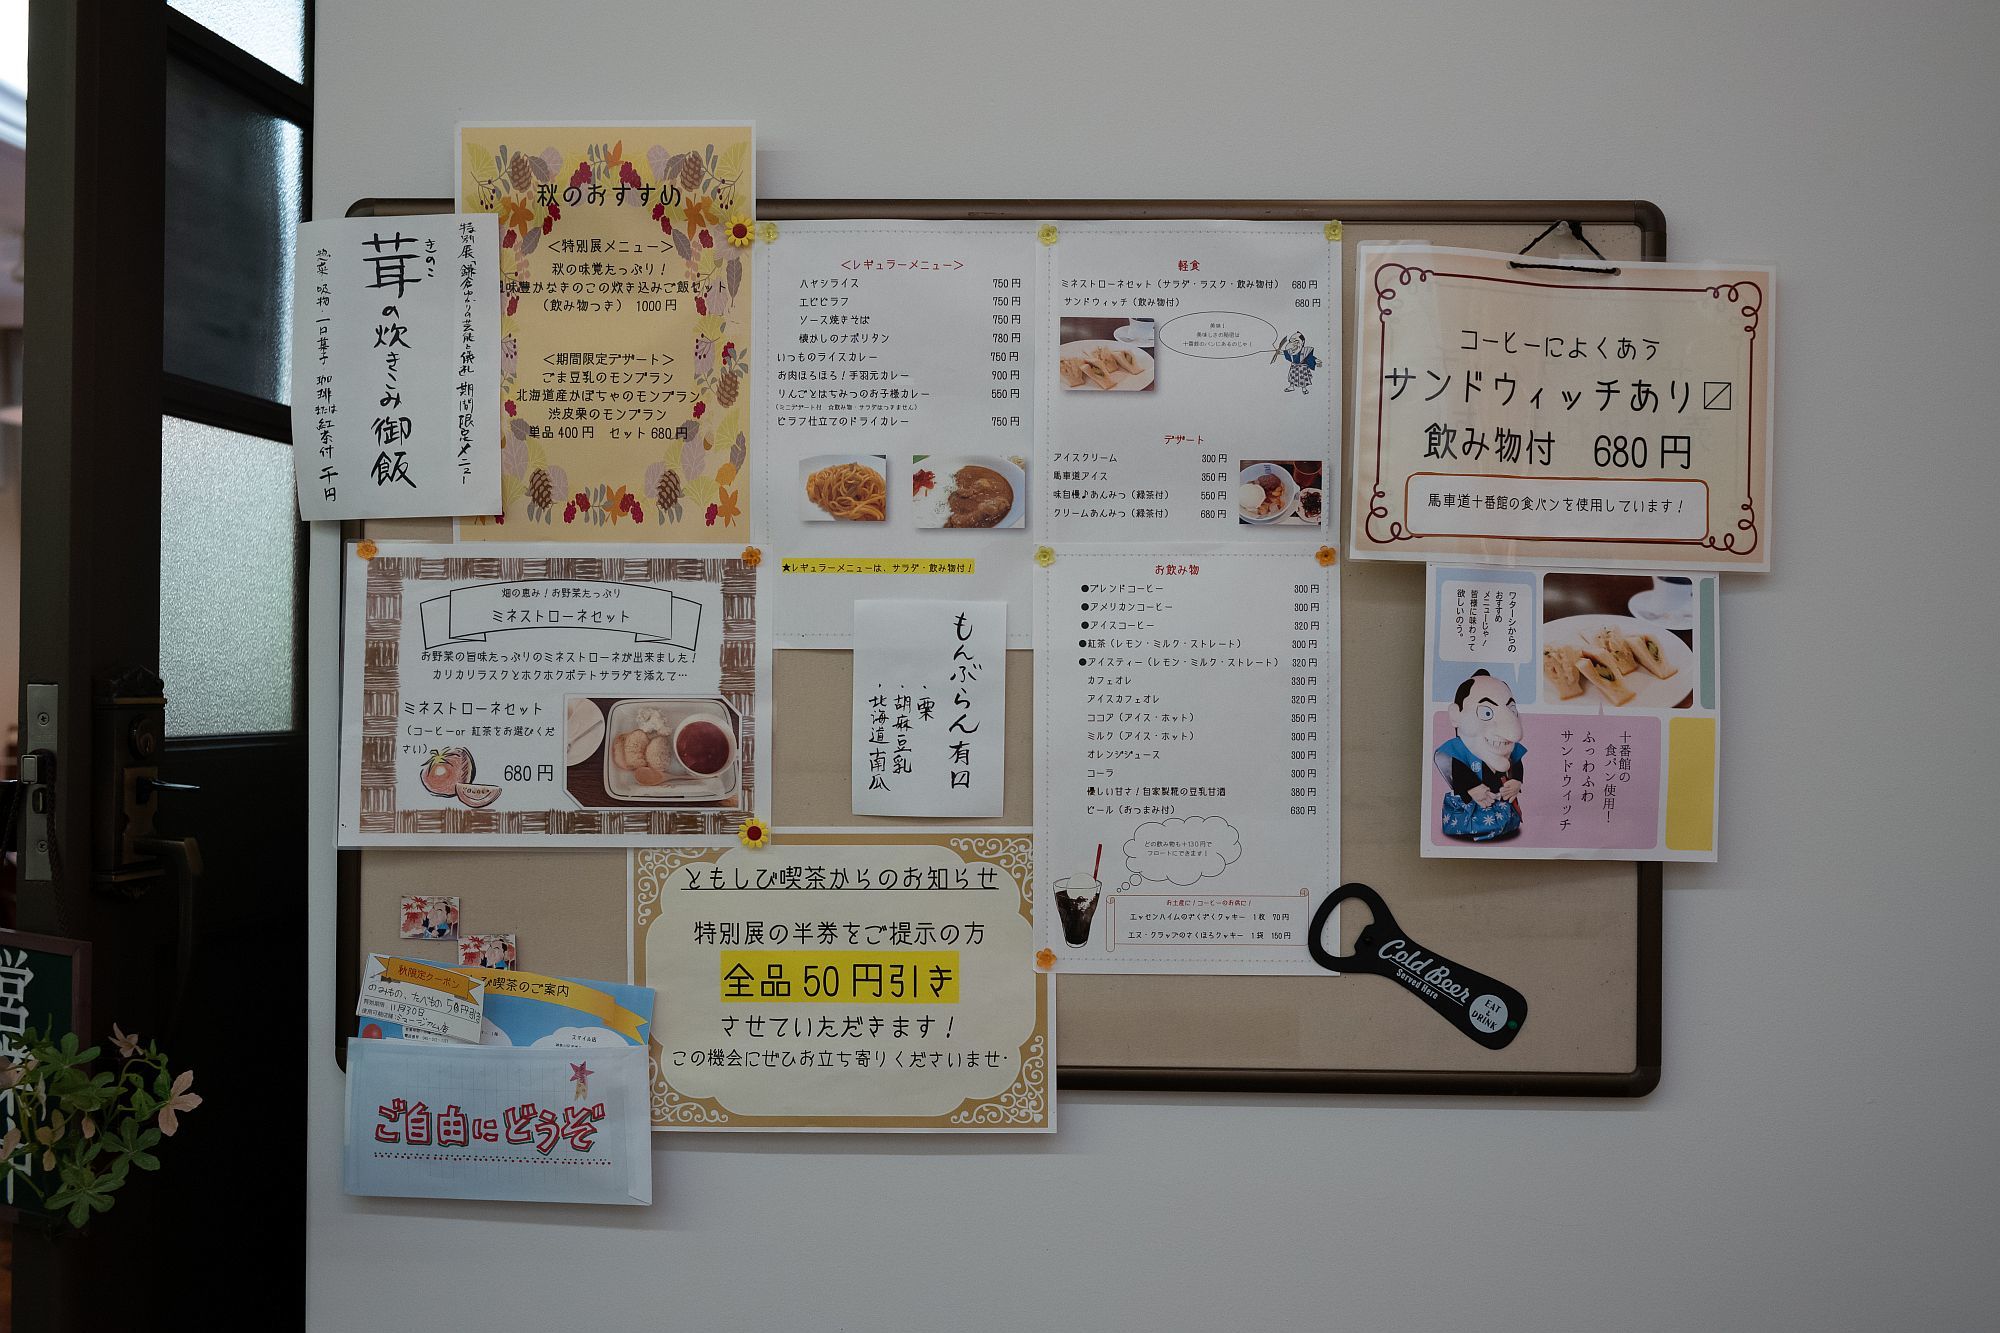 特別展「鎌倉ゆかりの芸能と儀礼」期間限定メニュー
きのこ
茸の炊きこみ御飯
惣菜・吸物・一口菓子 珈琲または紅茶付 千円
秋のおすすめ
＜特別展メニュー＞
秋の味覚たっぷり！
風味豊かなきのこの炊き込みご飯セット
（飲み物つき） 1000円
＜期間限定デザート＞
ごま豆乳のモンブラン
北海道産かぼちゃのモンブラン
渋皮栗のモンブラン
単品400円 セット680円
＜レギュラーメニュー＞
ハヤシライス 750円
エビピラフ 750円
ソース焼きそば 750円
懐かしのナポリタン 780円
いつものライスカレー 750円
お肉ほろほろ！手羽元カレー 900円
りんごとはちみつのお子様カレー 550円
（ミニデザート付 ☆飲み物・サラダはつきません）
ピラフ仕立てのドライカレー 750円
★レギュラーメニューは、サラダ・飲み物付！
軽食
ミネストローネセット（サラダ・ラスク・飲み物付） 680円
サンドウィッチ（飲み物付） 680円
美味！
美味しさの秘密は
十番館のパンにあるのじゃ！
デザート
アイスクリーム 300円
馬車道アイス 350円
味自慢♪あんみつ（緑茶付） 550円
クリームあんみつ（緑茶付） 680円
コーヒーによくあう
サンドウィッチあり〼
飲み物付 680円
馬車道十番館の食パンを使用しています！
畑の恵み！お野菜たっぷり
ミネストローネセット
お野菜の旨味たっぷりのミネストローネが出来ました！
カリカリラスクとホクホクポテトサラダを添えて…
ミネストローネセット
（コーヒーor 紅茶をお選びくだ
さい）
680円
もんぶらん有〼
・栗
・胡麻豆乳
・北海道南瓜
お飲み物
●ブレンドコーヒー 300円
●アメリカンコーヒー 300円
●アイスコーヒー 320円
●紅茶（レモン・ミルク・ストレート） 300円
●アイスティー（レモン・ミルク・ストレート） 320円
カフェオレ 330円
アイスカフェオレ 320円
ココア（アイス・ホット） 350円
ミルク（アイス・ホット） 300円
オレンジジュース 300円
コーラ 300円
優しい甘さ！自家製糀の豆乳甘酒 380円
ビール（おつまみ付） 630円
どの飲み物も＋130円で
フロートにできます！
お土産に！コーヒーのお供に！
エッセンハイムのざくざくクッキー 1枚 70円
エヌ・クラップのさくほろクッキー 1袋 150円
ワターシからの
おすすめ
メニューじゃ！
皆様に味わって
欲しいのう。
博
十番館の
食パン使用！
ふっわふわ
サンドウイッチ
ともしび喫茶からのお知らせ
特別展の半券をご提示の方
全品50円引き
させていただきます！
この機会にぜひお立ち寄りくださいませ・
秋限定クーポン
のみもの、たべもの 50円引き
有効期限：11月30日
使用可能店舗：ミュージアム店
び喫茶のご案内
スマイル店
ご自由にどうぞ
Cold Beer
Served Here
EAT
&
DRINK